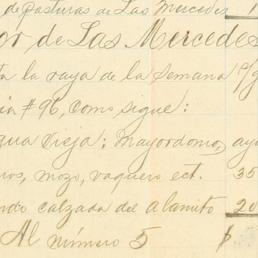 de pasturas de Las Mercedes 1
or de Las Mercedes
ta la raya de la semana 19/
ia # 96, como sigue:
gua Vieja; mayordomo, ay
ros, mozo, vaquero ect. 35
ndo calzada del alamito 20
Al número 5 $